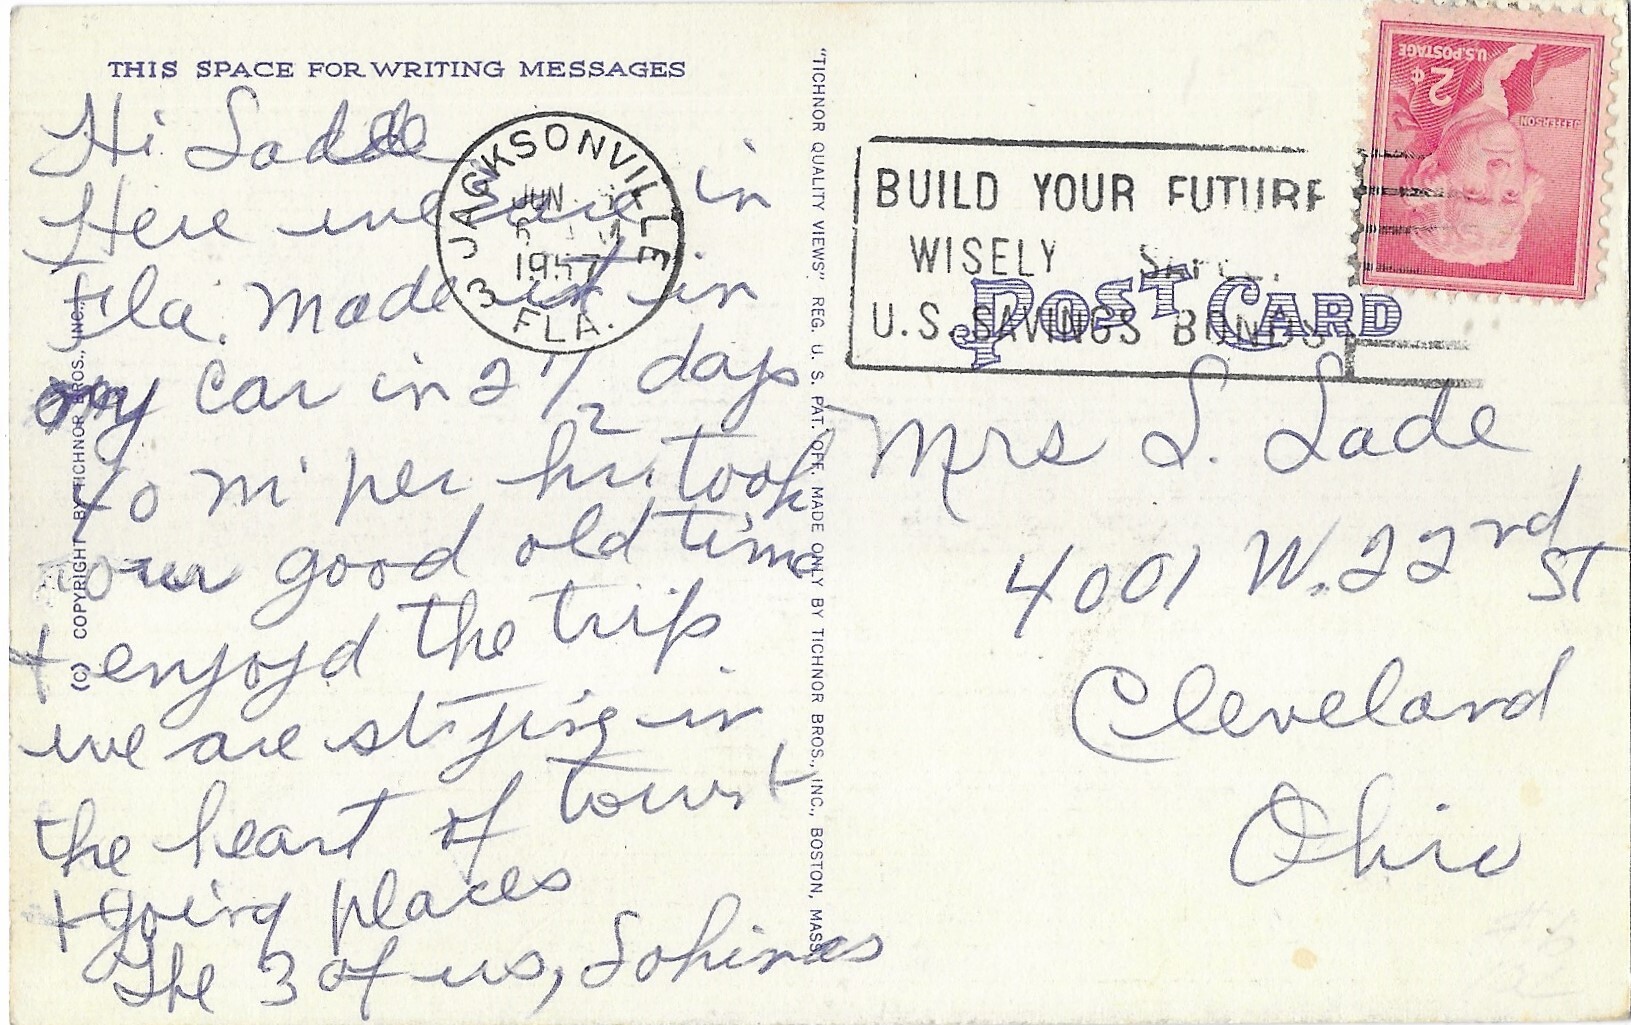 THIS SPACE FOR WRITING MESSAGES
Hi
Here we are in
Fla. made it in
my car in 2 1/2 days
40 mi per hr. took
our good old time
+ enjoyd the trip.
we are staying in
the heart of tourist
+ going places
The 3 of us,
(C) COPYRIGHT BY TICHNOR BROS., INC.
"TICHNOR QUALITY VIEWS" REG. U. S. PAT. OFF. MADE ONLY BY TICHNOR BROS., INC., BOSTON, MASS.
JACKSONVILLE
JUN
1957
3 FLA.
BUILD YOUR FUTURE
WISELY
U.S. SAVINGS BONDS
POST CARD
U.S. POSTAGE
2¢
JEFFERSON
Mrs S. Lade
4001 W. 22rd St
Cleveland
Ohio